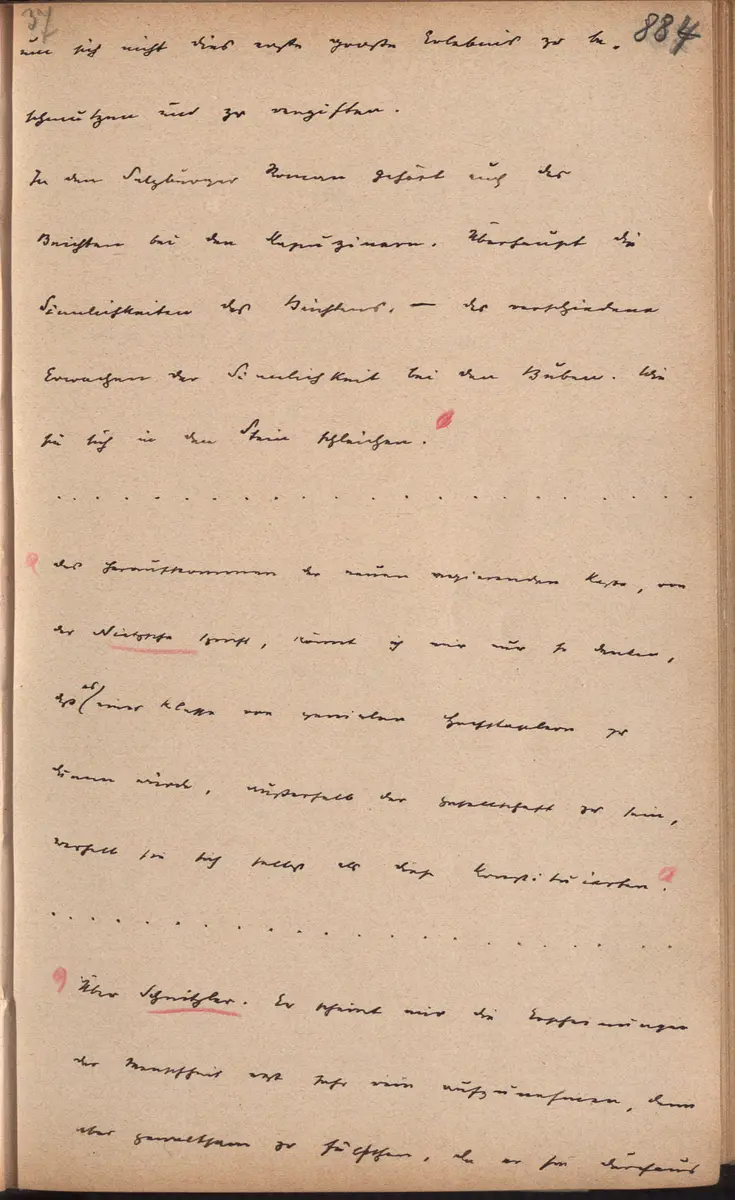 37
884
um sich nicht dies erste große Erlebnis zu be-
schmutzen und zu vergiften.
In den Salzburger Roman gehört auch das
Beichten bei den Kapuzinern. Überhaupt die
Sinnlichkeiten des Beichtens. — das verschiedene
Erwachen der Sinnlichkeit bei den Buben. Wie
sie sich in den Stein schleichen.
. . . . . . . . . . . . . . . . . .
das Heraufkommen der neuen regierenden Kaste, von
der Nietzsche spricht, könnt ich mir nur so denken,
daß es einer Klasse von genialen Hochstaplern zu
dumm würde, außerhalb der Gesellschaft zu sein,
weshalb sie sich selbst als diese konstituierten.
. . . . . . . . . . . . . . . . . .
Über Schnitzler. Er scheint mir die Erscheinungen
der Menschheit erst sehr rein aufzunehmen, dann
aber gewaltsam zu fälschen, da er sie durchaus